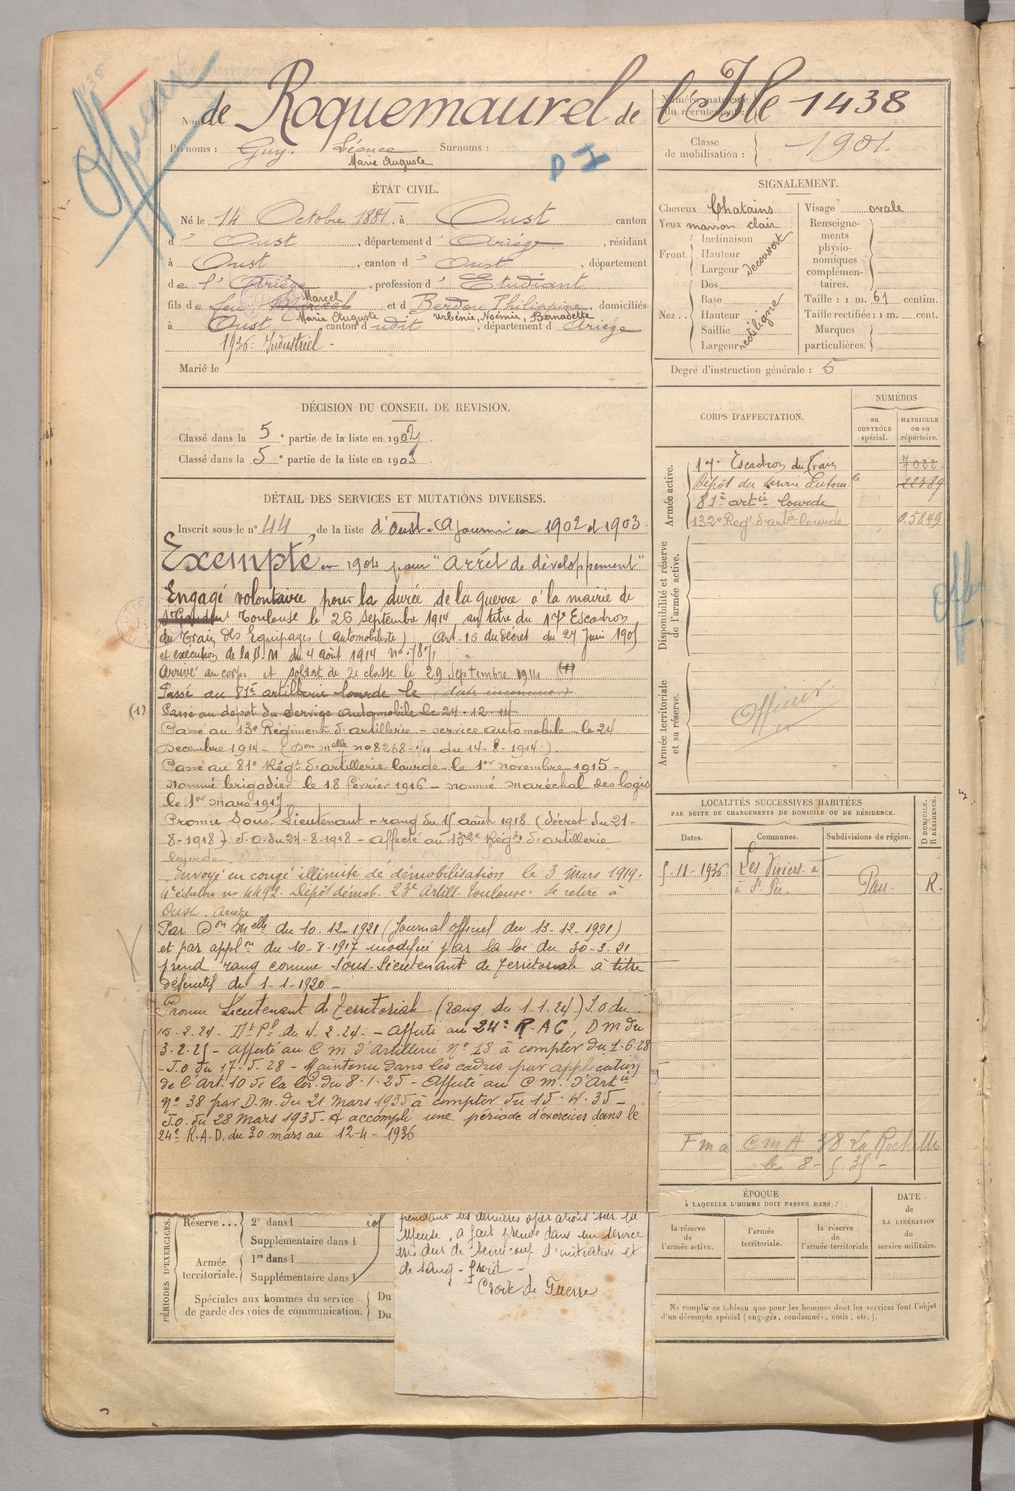 Officier
Nom : de Roquemaurel de l'Isle
Numéro matricule du recrutement : 1438
Prénoms : Guy. Léonce Surnoms :
Marie Auguste
D I
Classe de mobilisation : 1901.
ÉTAT CIVIL.
Né le 14 Octobre 1881, à Oust canton
d' Oust, département d' Ariège, résidant
à Oust, canton d' Oust, département
de l' Ariège, profession d' Etudiant
fils de feu Marcel et d Berdou Philippine, domiciliés
Marie Auguste Urbénie, Noémie, Bernadette
à Oust canton d udit, département d' Ariège
1936: Industriel -
Marié le
SIGNALEMENT.
Cheveux Chatains
Yeux marron clair
Front. Inclinaison
Hauteur
Largeur
découvert
Nez.. Dos
Base
Hauteur
Saillie
Largeur
rectiligne
Visage ovale
Renseignements physionomiques complémentaires.
Taille : 1 m. 61 centim.
Taille rectifiée : 1 m. cent.
Marques particulières.
Degré d'instruction générale : 5
DÉCISION DU CONSEIL DE REVISION.
Classé dans la 5e partie de la liste en 1902.
Classé dans la 5e partie de la liste en 1903.
DÉTAIL DES SERVICES ET MUTATIONS DIVERSES.
Inscrit sous le n° 44 de la liste d'Oust. Ajourné en 1902 et 1903.
Exempté en 1904 pour "Arrêt de développement"
Engagé volontaire pour la durée de la guerre à la mairie de
Toulouse le 26 Septembre 1914, au titre du 17e Escadron
du Train des Equipages (automobiliste) Art. 16 du décret du 27 Juin 1905
et exécution de la D M du 4 août 1914
Arrivé au corps et soldat de 2e classe le 29 Septembre 1914 (1)
Passé au 81e artillerie lourde le (date inconnue)
(1) Passé au dépôt du Service Automobile le 24-12-14
Passé au 13e Régiment d'artillerie - service automobile - le 24
Décembre 1914 - (Don melle n° 8268-1/11 du 14-8-1914)
Passé au 81e Régt d'artillerie lourde le 1er novembre 1915 -
Nommé brigadier le 18 février 1916 - nommé maréchal des logis
le 1er mars 1917
Promu Sous-Lieutenant - rang du 15 août 1918 (décret du 21-
8-1918) J.O. du 24-8-1918 - affecté au 132e Régt d'artillerie
lourde
Envoyé en congé illimité de démobilisation le 3 Mars 1919.
4e échelon no 4492. Dépôt démob. 23e Artill. Toulouse. Se retire à
Oust. Ariège
Par Don Melle du 10.12.1921 (Journal officiel du 13-12-1921)
et par applon du 10-8-1917 modifié par la loi du 30-3-21
prend rang comme Sous-Lieutenant de Territoriale à titre
définitif du 1-1-1920 -
Promu Lieutenant de Territoriale (rang du 1.1.24) J.O du
15.2.24 - Dt Pl du 4.2.24. - Affecté au 24e R.A.C, D M du
3-2-25 - Affecté au C M d'Artillerie N° 18 à compter du 1-6-28
-J.O du 17.5-28 - Maintenu dans les cadres par application
de l'Art. 10 de la loi du 8-1-25 - Affecté au C M. d'Artie
N° 38 par D.M. du 21 Mars 1935 à compter du 15-4-35 -
J.O. du 28 Mars 1935 - A accompli une période d'exercices dans le
24e R.A.D. du 30 mars au 12-4-1936
CORPS D'AFFECTATION.
NUMÉROS
au CONTRÔLE spécial.
MATRICULE ou au répertoire.
Armée active.
17e Escadron du Train 7022
Dépôt du Service Autom le
81e artie lourde
132e Régt d'artie lourde 05849
Disponibilité et réserve de l'armée active.
Armée territoriale et sa réserve.
Officier.
LOCALITÉS SUCCESSIVES HABITÉES
PAR SUITE DE CHANGEMENTS DE DOMICILE OU DE RÉSIDENCE.
Dates. Communes. Subdivisions de région. D DOMICILE. R RÉSIDENCE.
5-11-1936 Les Viviers à Pau R.
F m a C m A 38 La Rochelle
le 8-5 35 -
ÉPOQUE
À LAQUELLE L'HOMME DOIT PASSER DANS :
la réserve de l'armée active.
l'armée territoriale.
la réserve de l'armée territoriale
DATE de LA LIBÉRATION du service militaire.
Ne remplir ce tableau que pour les hommes dont les services font l'objet
d'un décompte spécial (engagés, condamnés, omis, etc.).
PÉRIODES D'EXERCICES.
Réserve... 2e dans l
Supplémentaire dans l
Armée territoriale. 1re dans l
Supplémentaire dans l
Spéciales aux hommes du service Du
de garde des voies de communication. Du
pendant les dernières opérations sur la
Meuse, a fait preuve dans un service
très dur de beaucoup d'initiative et
de sang-froid -
Croix de Guerre